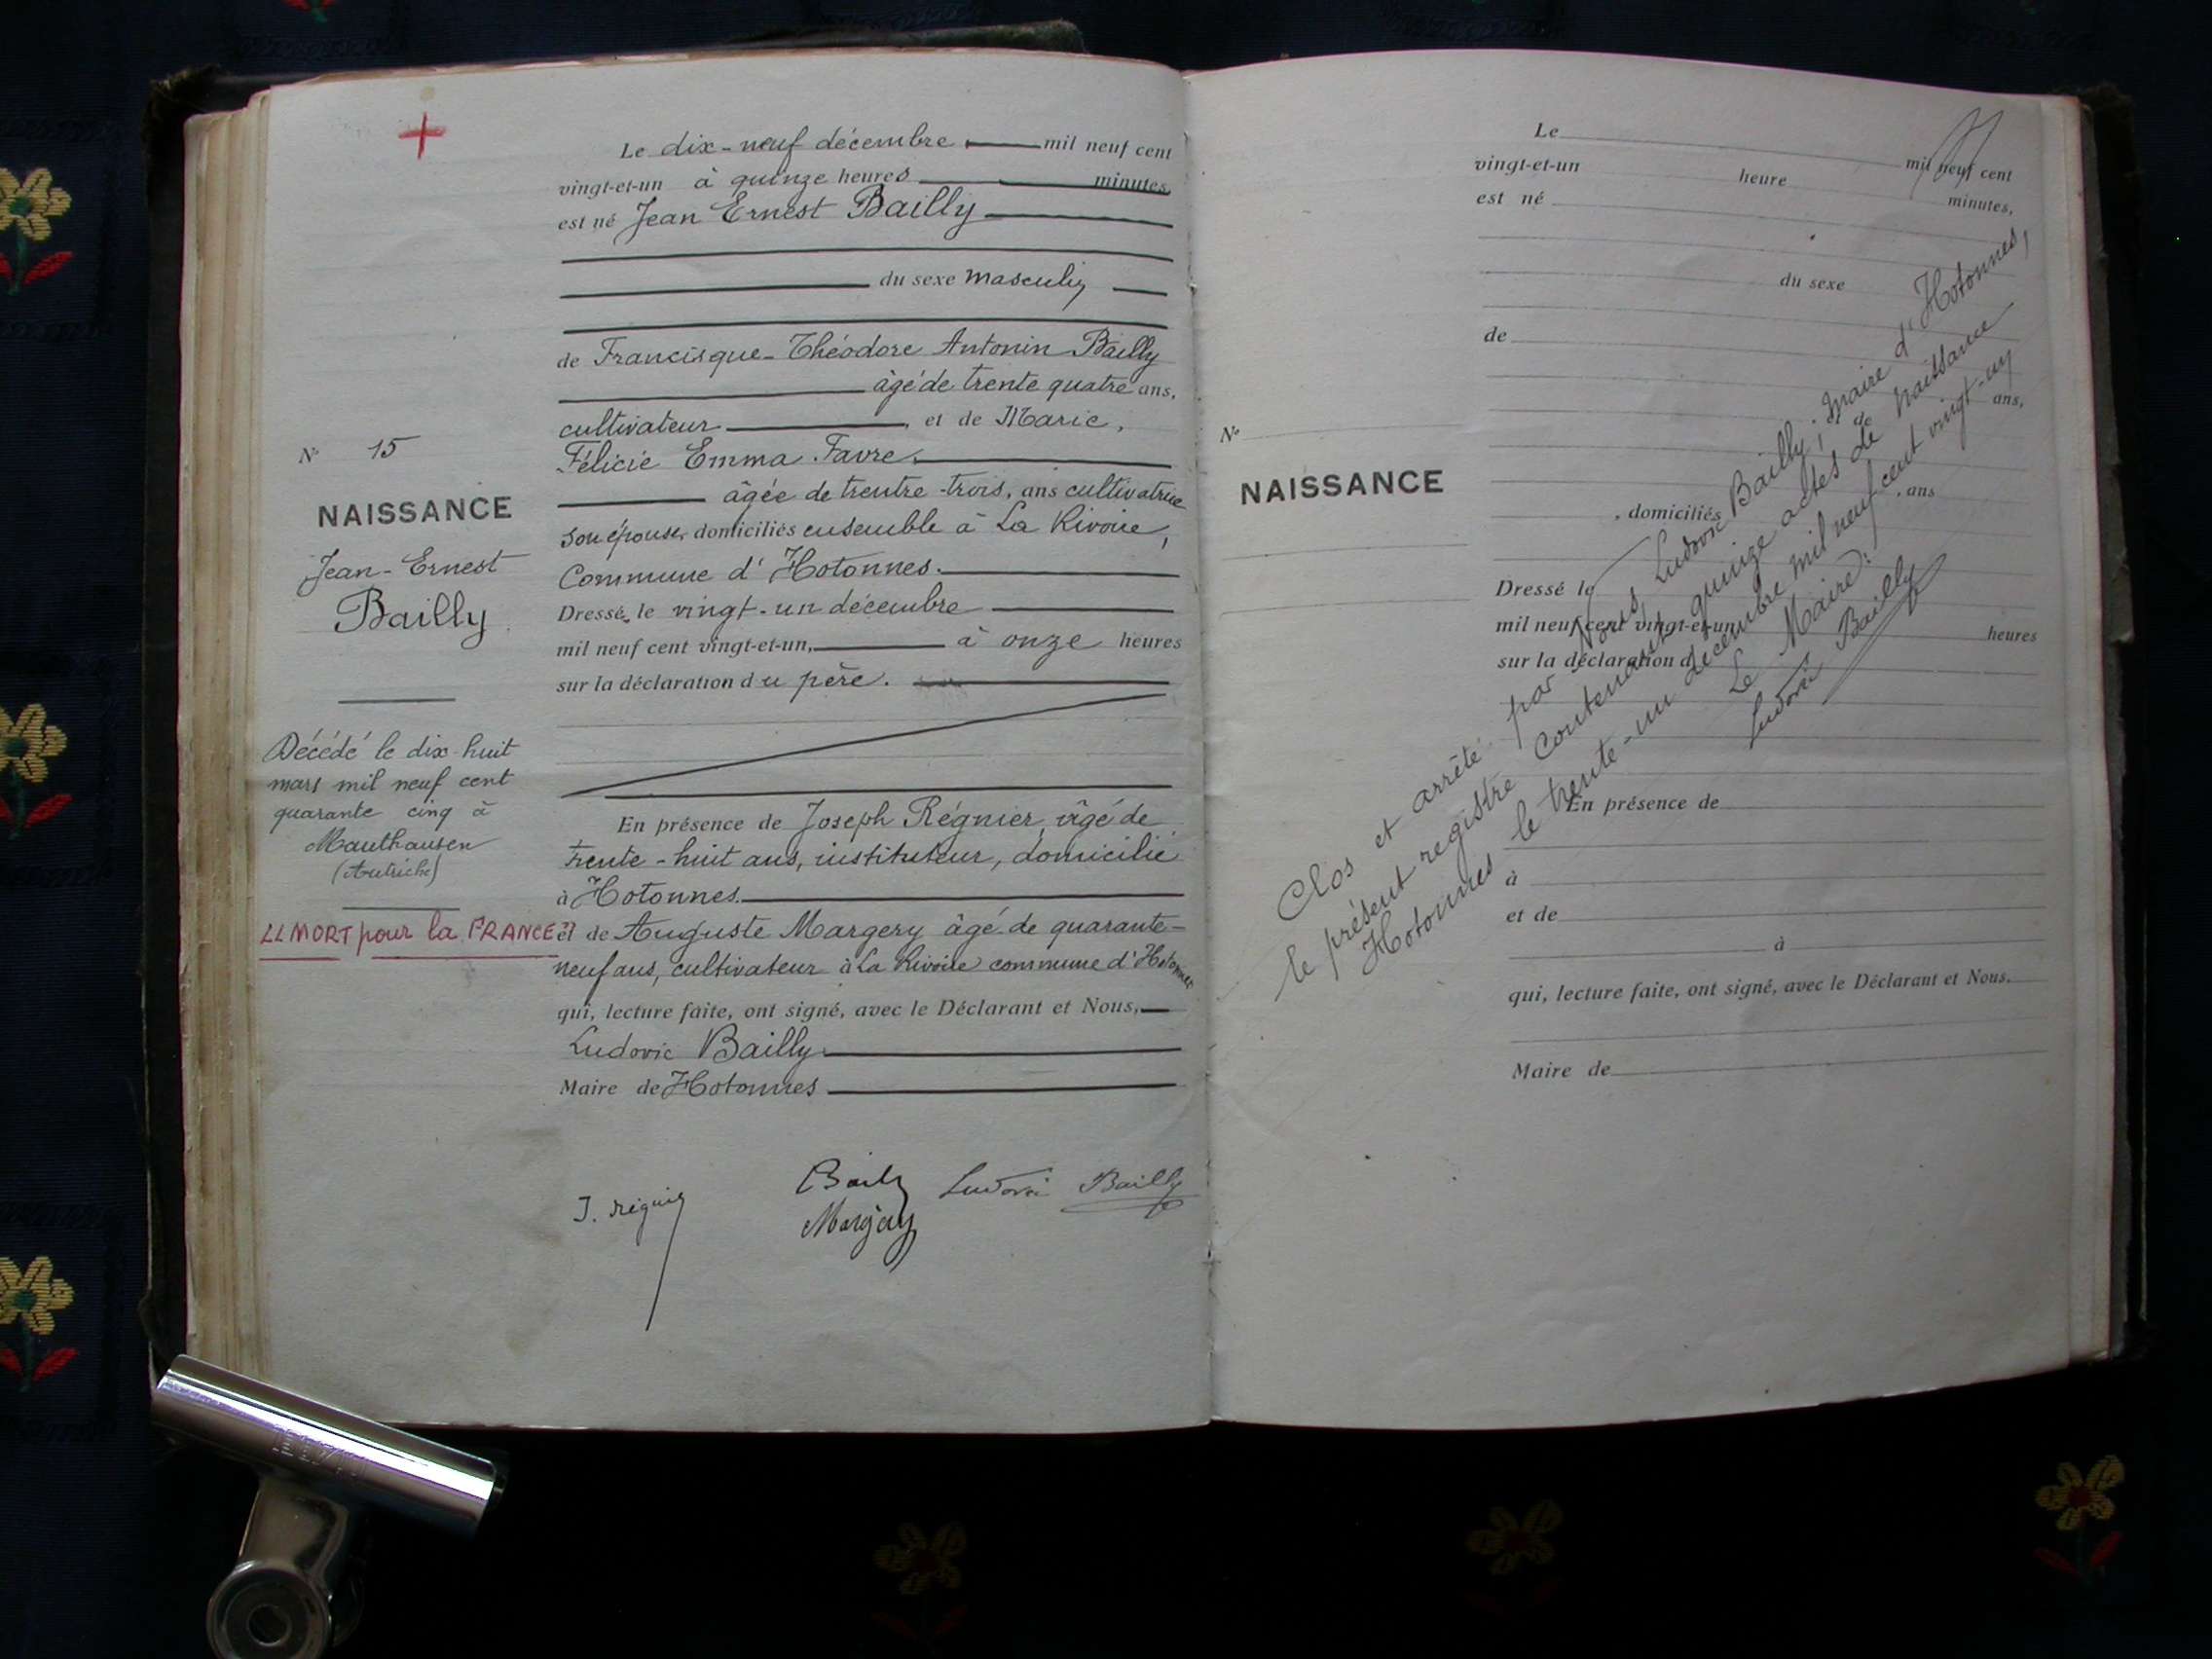 Le dix-neuf décembre mil neuf cent
vingt-et-un à quinze heures minutes,
est né Jean Ernest Bailly
du sexe masculin
de Francisque-Théodore Antonin Bailly
âgé de trente quatre ans,
cultivateur, et de Marie,
Félicie Emma Favre
âgée de trentre-trois, ans cultivatrice
son épouse, domiciliés ensemble à La Rivoire,
Commune d'Hotonnes.
Dressé le vingt-un décembre
mil neuf cent vingt-et-un, à onze heures
sur la déclaration du père.
En présence de Joseph Régnier, âgé de
trente-huit ans, instituteur, domicilié
à Hotonnes.
et de Auguste Margery âgé de quarante-
neuf ans, cultivateur à La Rivoire commune d'Hotonnes
qui, lecture faite, ont signé, avec le Déclarant et Nous,
Ludovic Bailly
Maire de Hotonnes
J. Régnier
Bailly
Ludovic Bailly
Margery
N° 15
NAISSANCE
Jean-Ernest
Bailly
Décédé le dix huit
mars mil neuf cent
quarante cinq à
Mauthausen
(Autriche)
"MORT pour la FRANCE"
Le mil neuf cent
vingt-et-un heure minutes,
est né
du sexe
de
ans,
et de
, ans
, domiciliés
Dressé le
mil neuf cent vingt-et-un heures
sur la déclaration d
En présence de
à
et de
à
qui, lecture faite, ont signé, avec le Déclarant et Nous,
Maire de
N°
NAISSANCE
Clos et arrêté par Nous, Ludovic Bailly, maire d'Hotonnes,
le présent registre contenant quinze actes de naissance
Hotonnes le trente-un décembre mil neuf cent vingt-un
Le Maire:
Ludovic Bailly